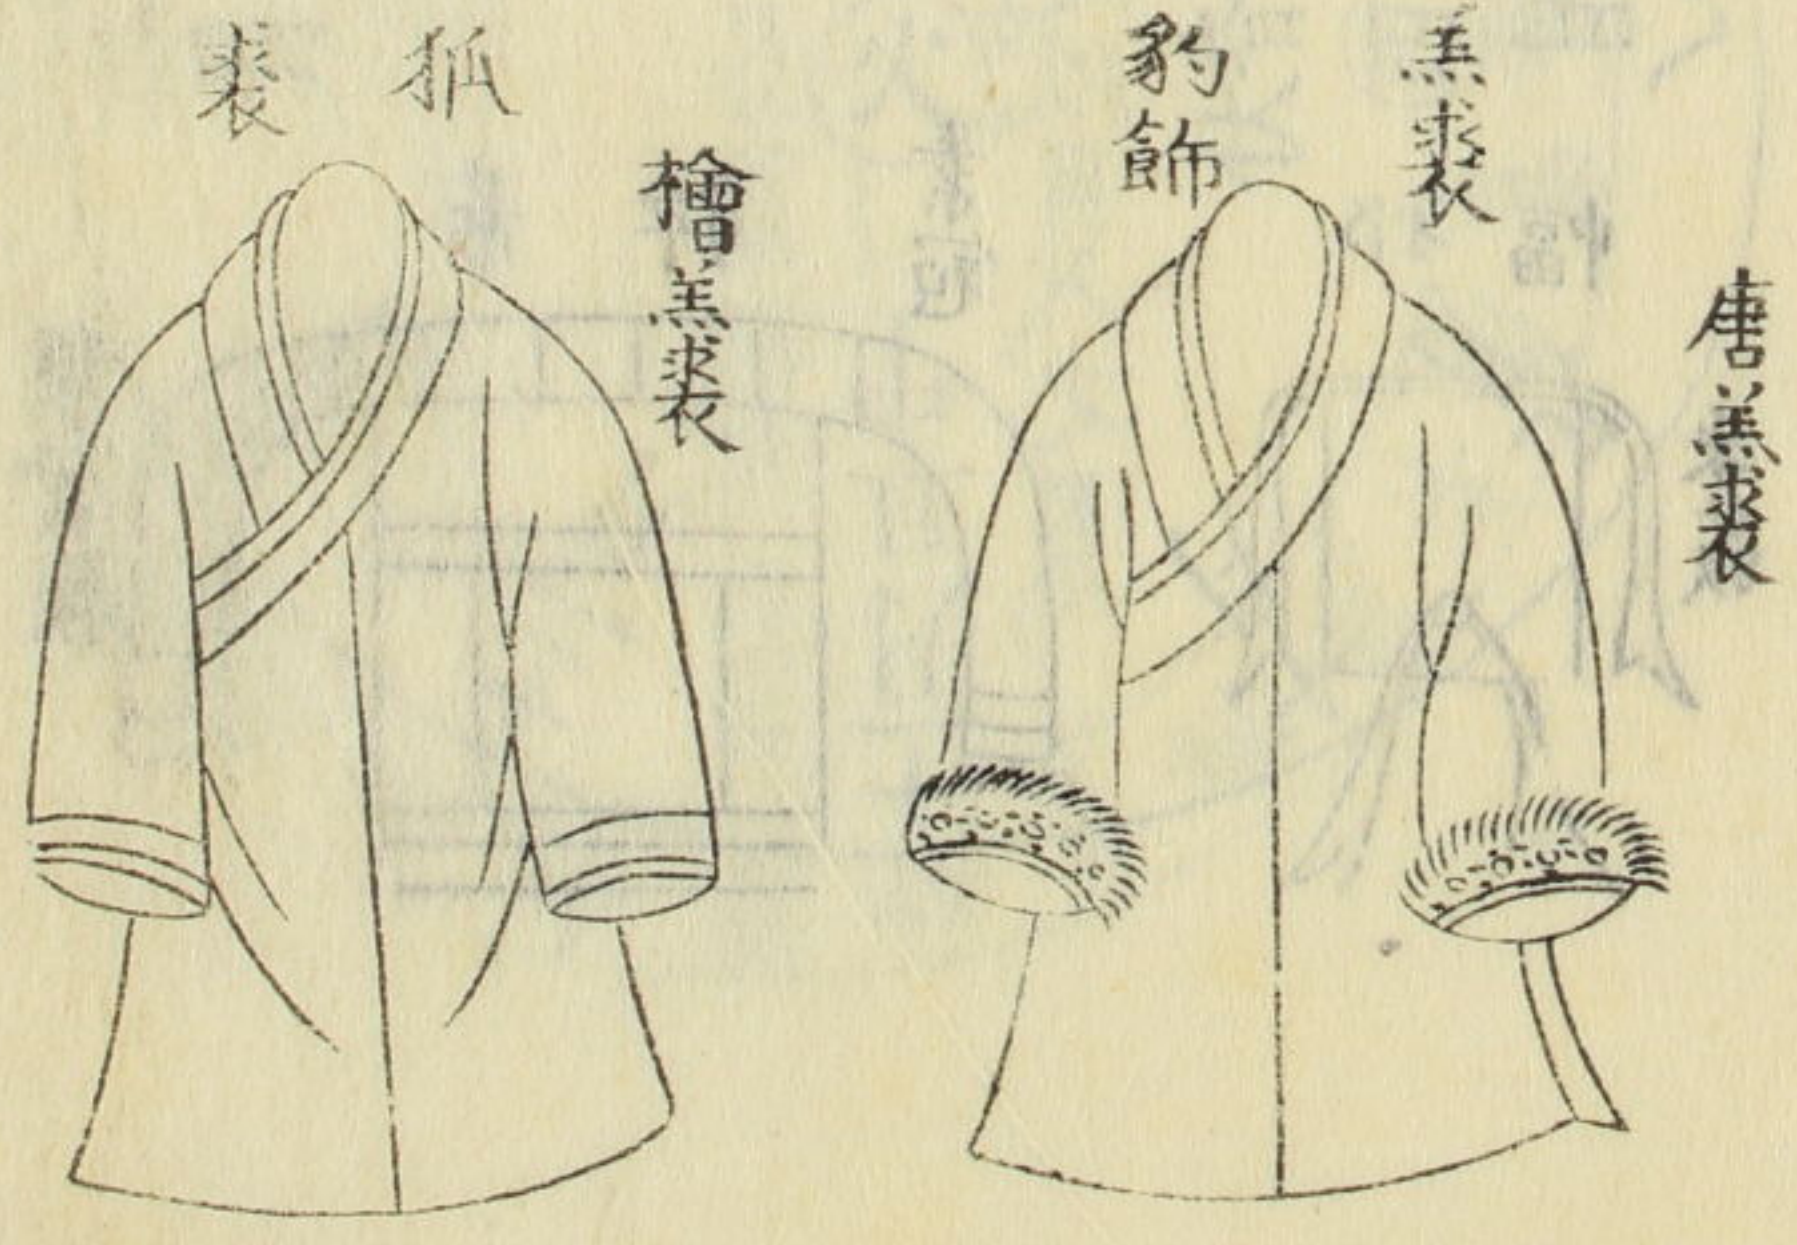 唐羔裘
羔裘
豹飾
檜羔裘
狐
裘